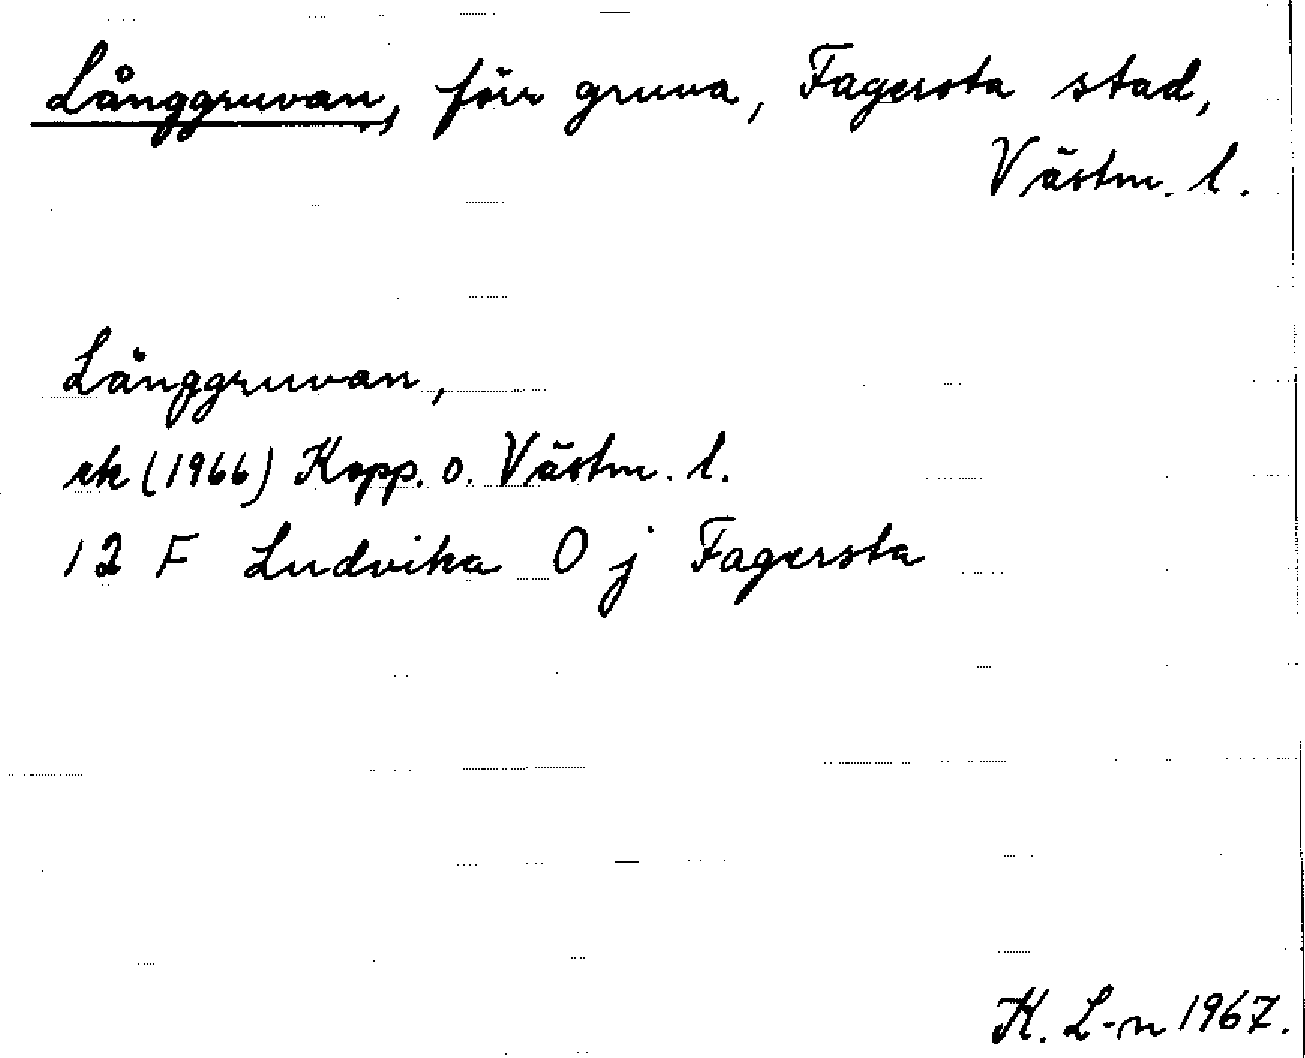 Långgruvan, förr gruva, Fagersta stad,
Västm. l.
Långgruvan,
ek (1966) Kopp. o. Västm. l.
12 F Ludvika O j Fagersta
K. L-n 1967.